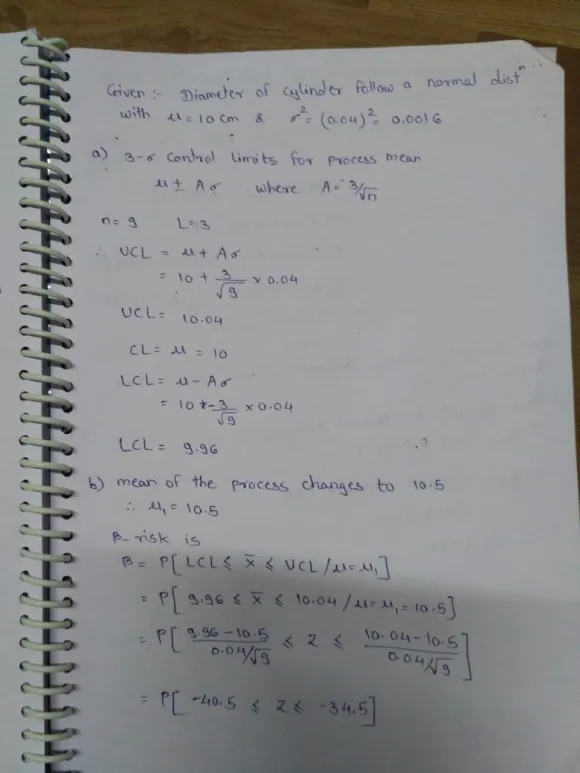 Given :- Diameter of cylinder follow a normal distⁿ
with μ = 10 cm & σ² = (0.04)² = 0.0016
a) 3-σ control limits for process mean
μ ± Aσ where A = 3/√n
n = 9 L = 3
∴ UCL = μ + Aσ
= 10 + 3/√9 × 0.04
UCL = 10.04
CL = μ = 10
LCL = μ - Aσ
= 10 - 3/√9 × 0.04
LCL = 9.96
b) mean of the process changes to 10.5
∴ μ₁ = 10.5
β-risk is
β = P[LCL ≤ x̄ ≤ UCL / μ = μ₁]
= P[9.96 ≤ x̄ ≤ 10.04 / μ = μ₁ = 10.5]
= P[9.96 - 10.5 / 0.04/√9 ≤ Z ≤ 10.04 - 10.5 / 0.04/√9]
= P[-40.5 ≤ Z ≤ -34.5]